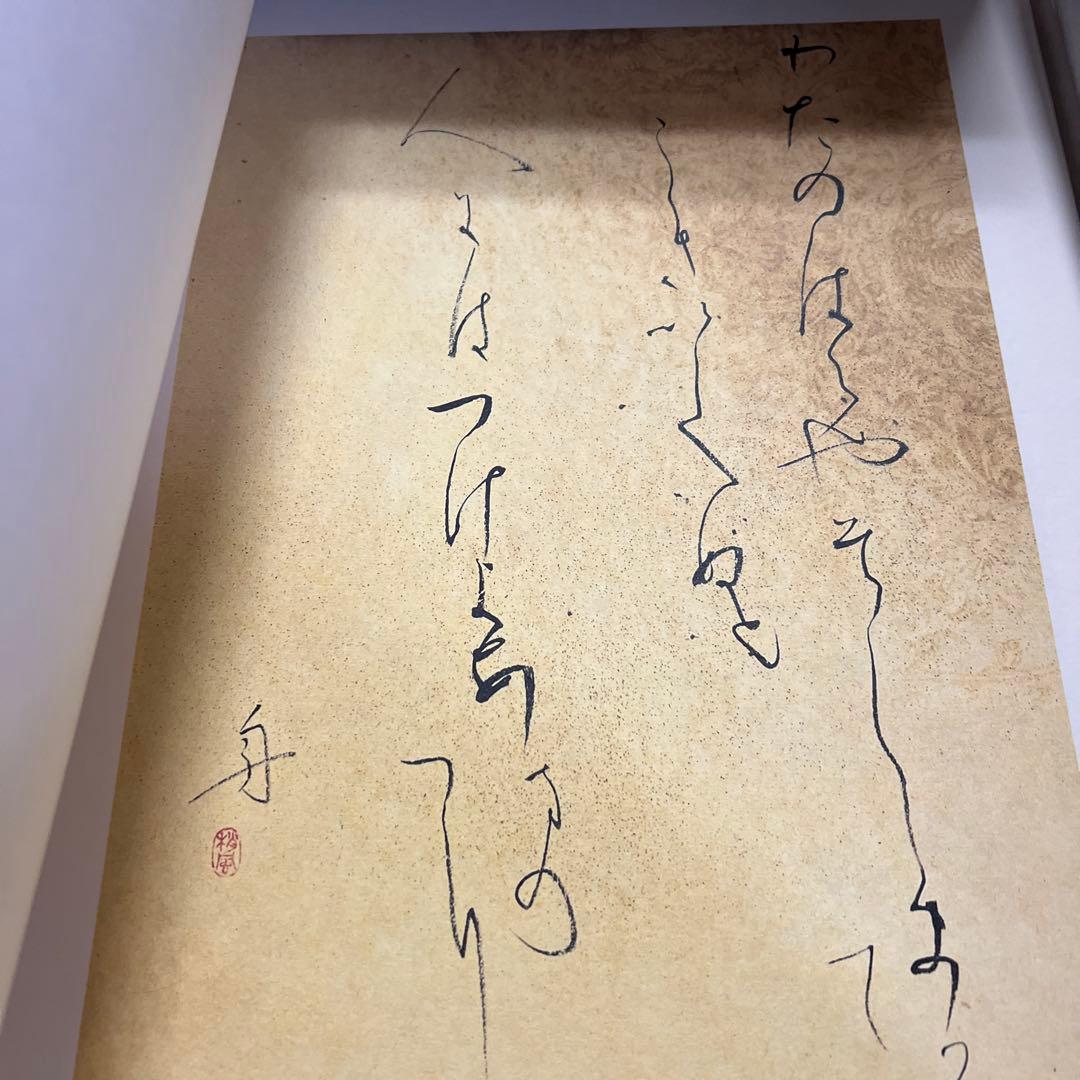 わたのはらやそしま
て
こきいてぬと
人にはつけよあまの
つり
舟